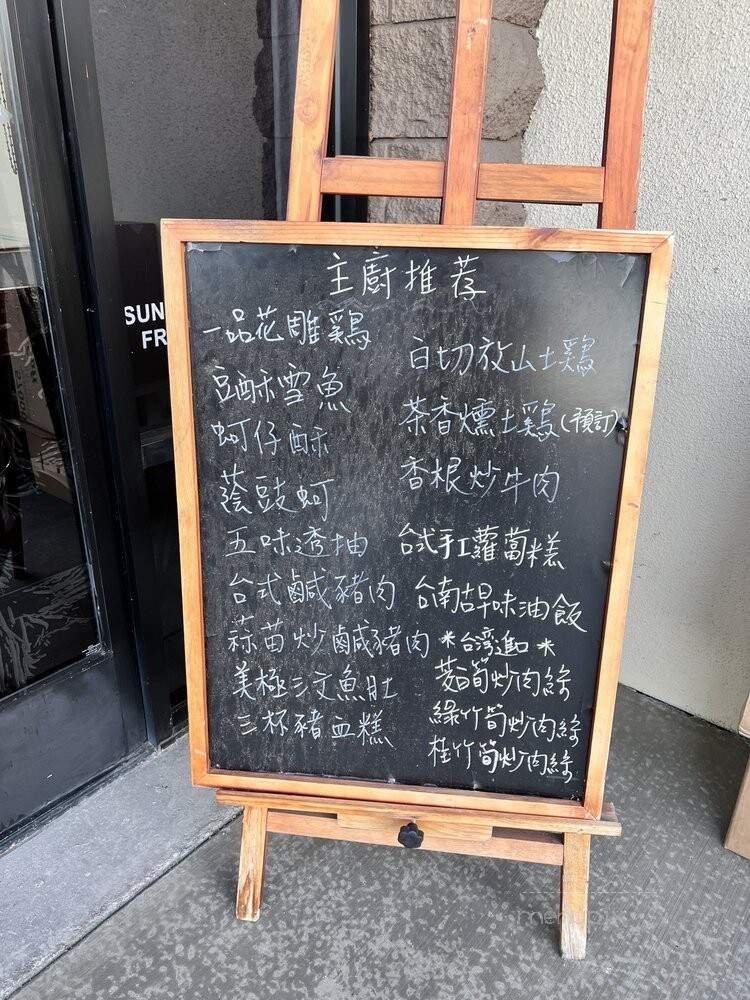 主廚推荐
一品花雕鷄
豆酥雪魚
蚵仔酥
蔭豉蚵
五味透抽
台式鹹豬肉
蒜苗炒鹹豬肉
美極三文魚肚
三杯豬血糕
白切放山土鷄
茶香燻土鷄(預訂)
香根炒牛肉
台式手工蘿蔔糕
台南古早味油飯
*台湾進口*
茭白筍炒肉絲
綠竹筍炒肉絲
桂竹筍炒肉絲
SUN
FR